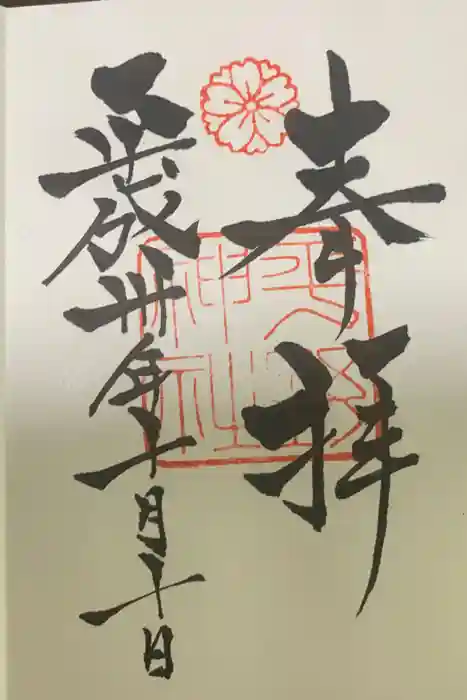 奉拝
神社
平成卅年十月十日